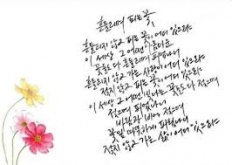 흔들리며 피는 꽃
흔들리지 않고 피는 꽃이 어디 있으랴
이 세상 그 어떤
꽃들도 다 흔들리며 피었나니
흔들리지 않고 가는 사랑이 어디 있으랴
젖지 않고 피는 꽃이 어디 있으랴
이 세상 그 어떤 빛나는 꽃들도 다 젖으며
젖으며 피었나니
바람과 비에 젖으며
꽃잎 따뜻하게 피웠나니
젖지 않고 가는 삶이 어디 있으랴